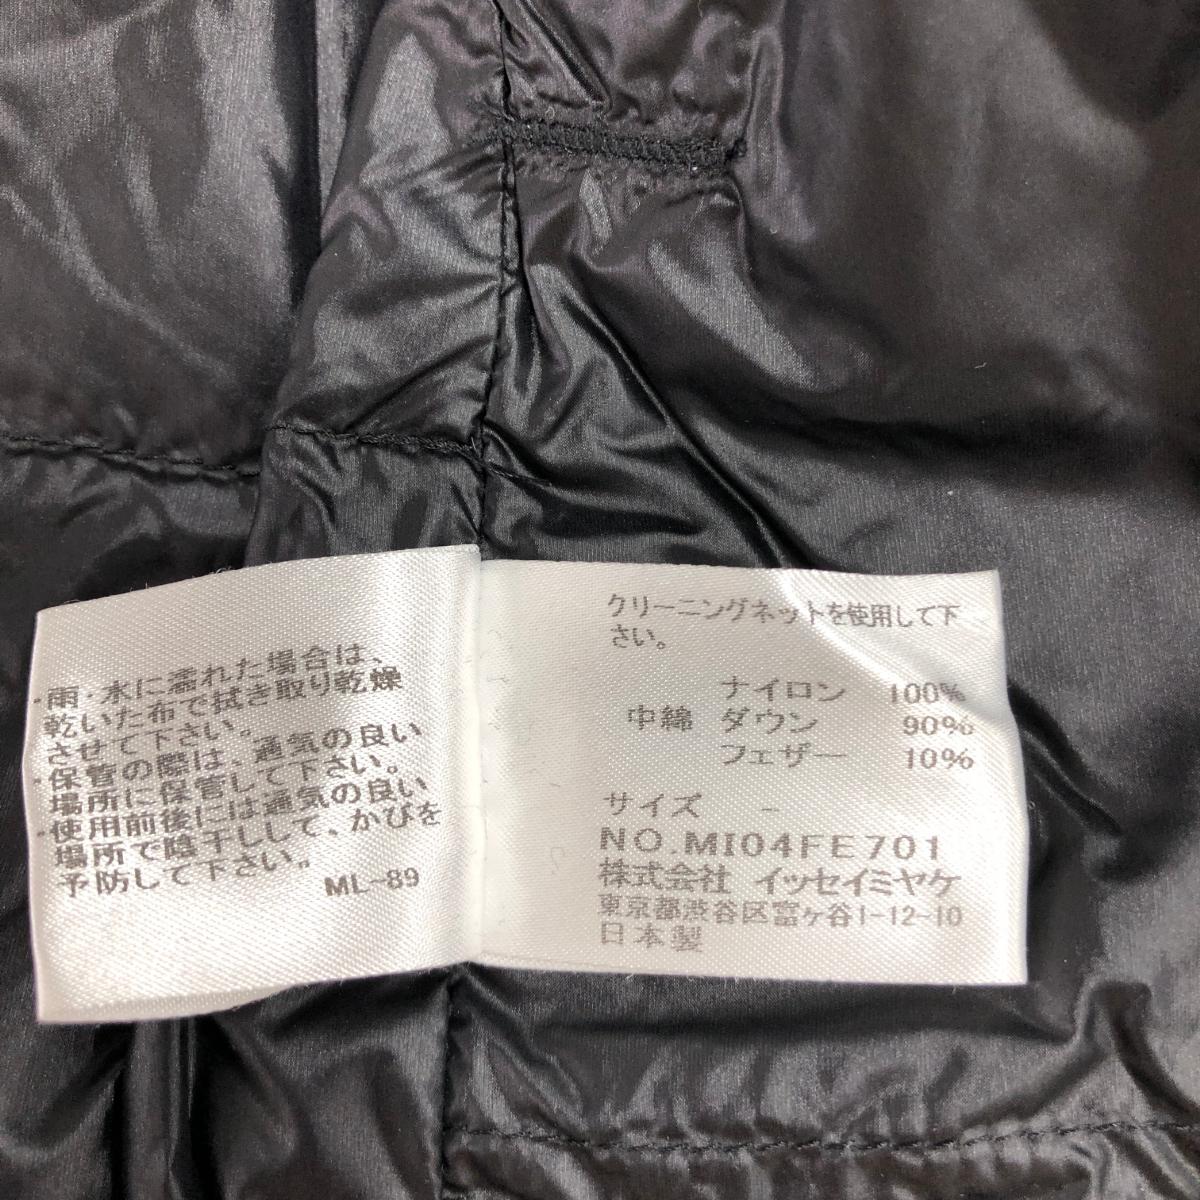 ・雨・水に濡れた場合は、
乾いた布で拭き取り乾燥
させて下さい。
・保管の際は、通気の良い
場所に保管して下さい。
・使用前後には通気の良い
場所で陰干しして、かびを
予防して下さい。
ML-89
クリーニングネットを使用して下
さい。
ナイロン 100%
中綿 ダウン 90%
フェザー 10%
サイズ -
NO.MI04FE701
株式会社 イッセイミヤケ
東京都渋谷区富ヶ谷1-12-10
日本製